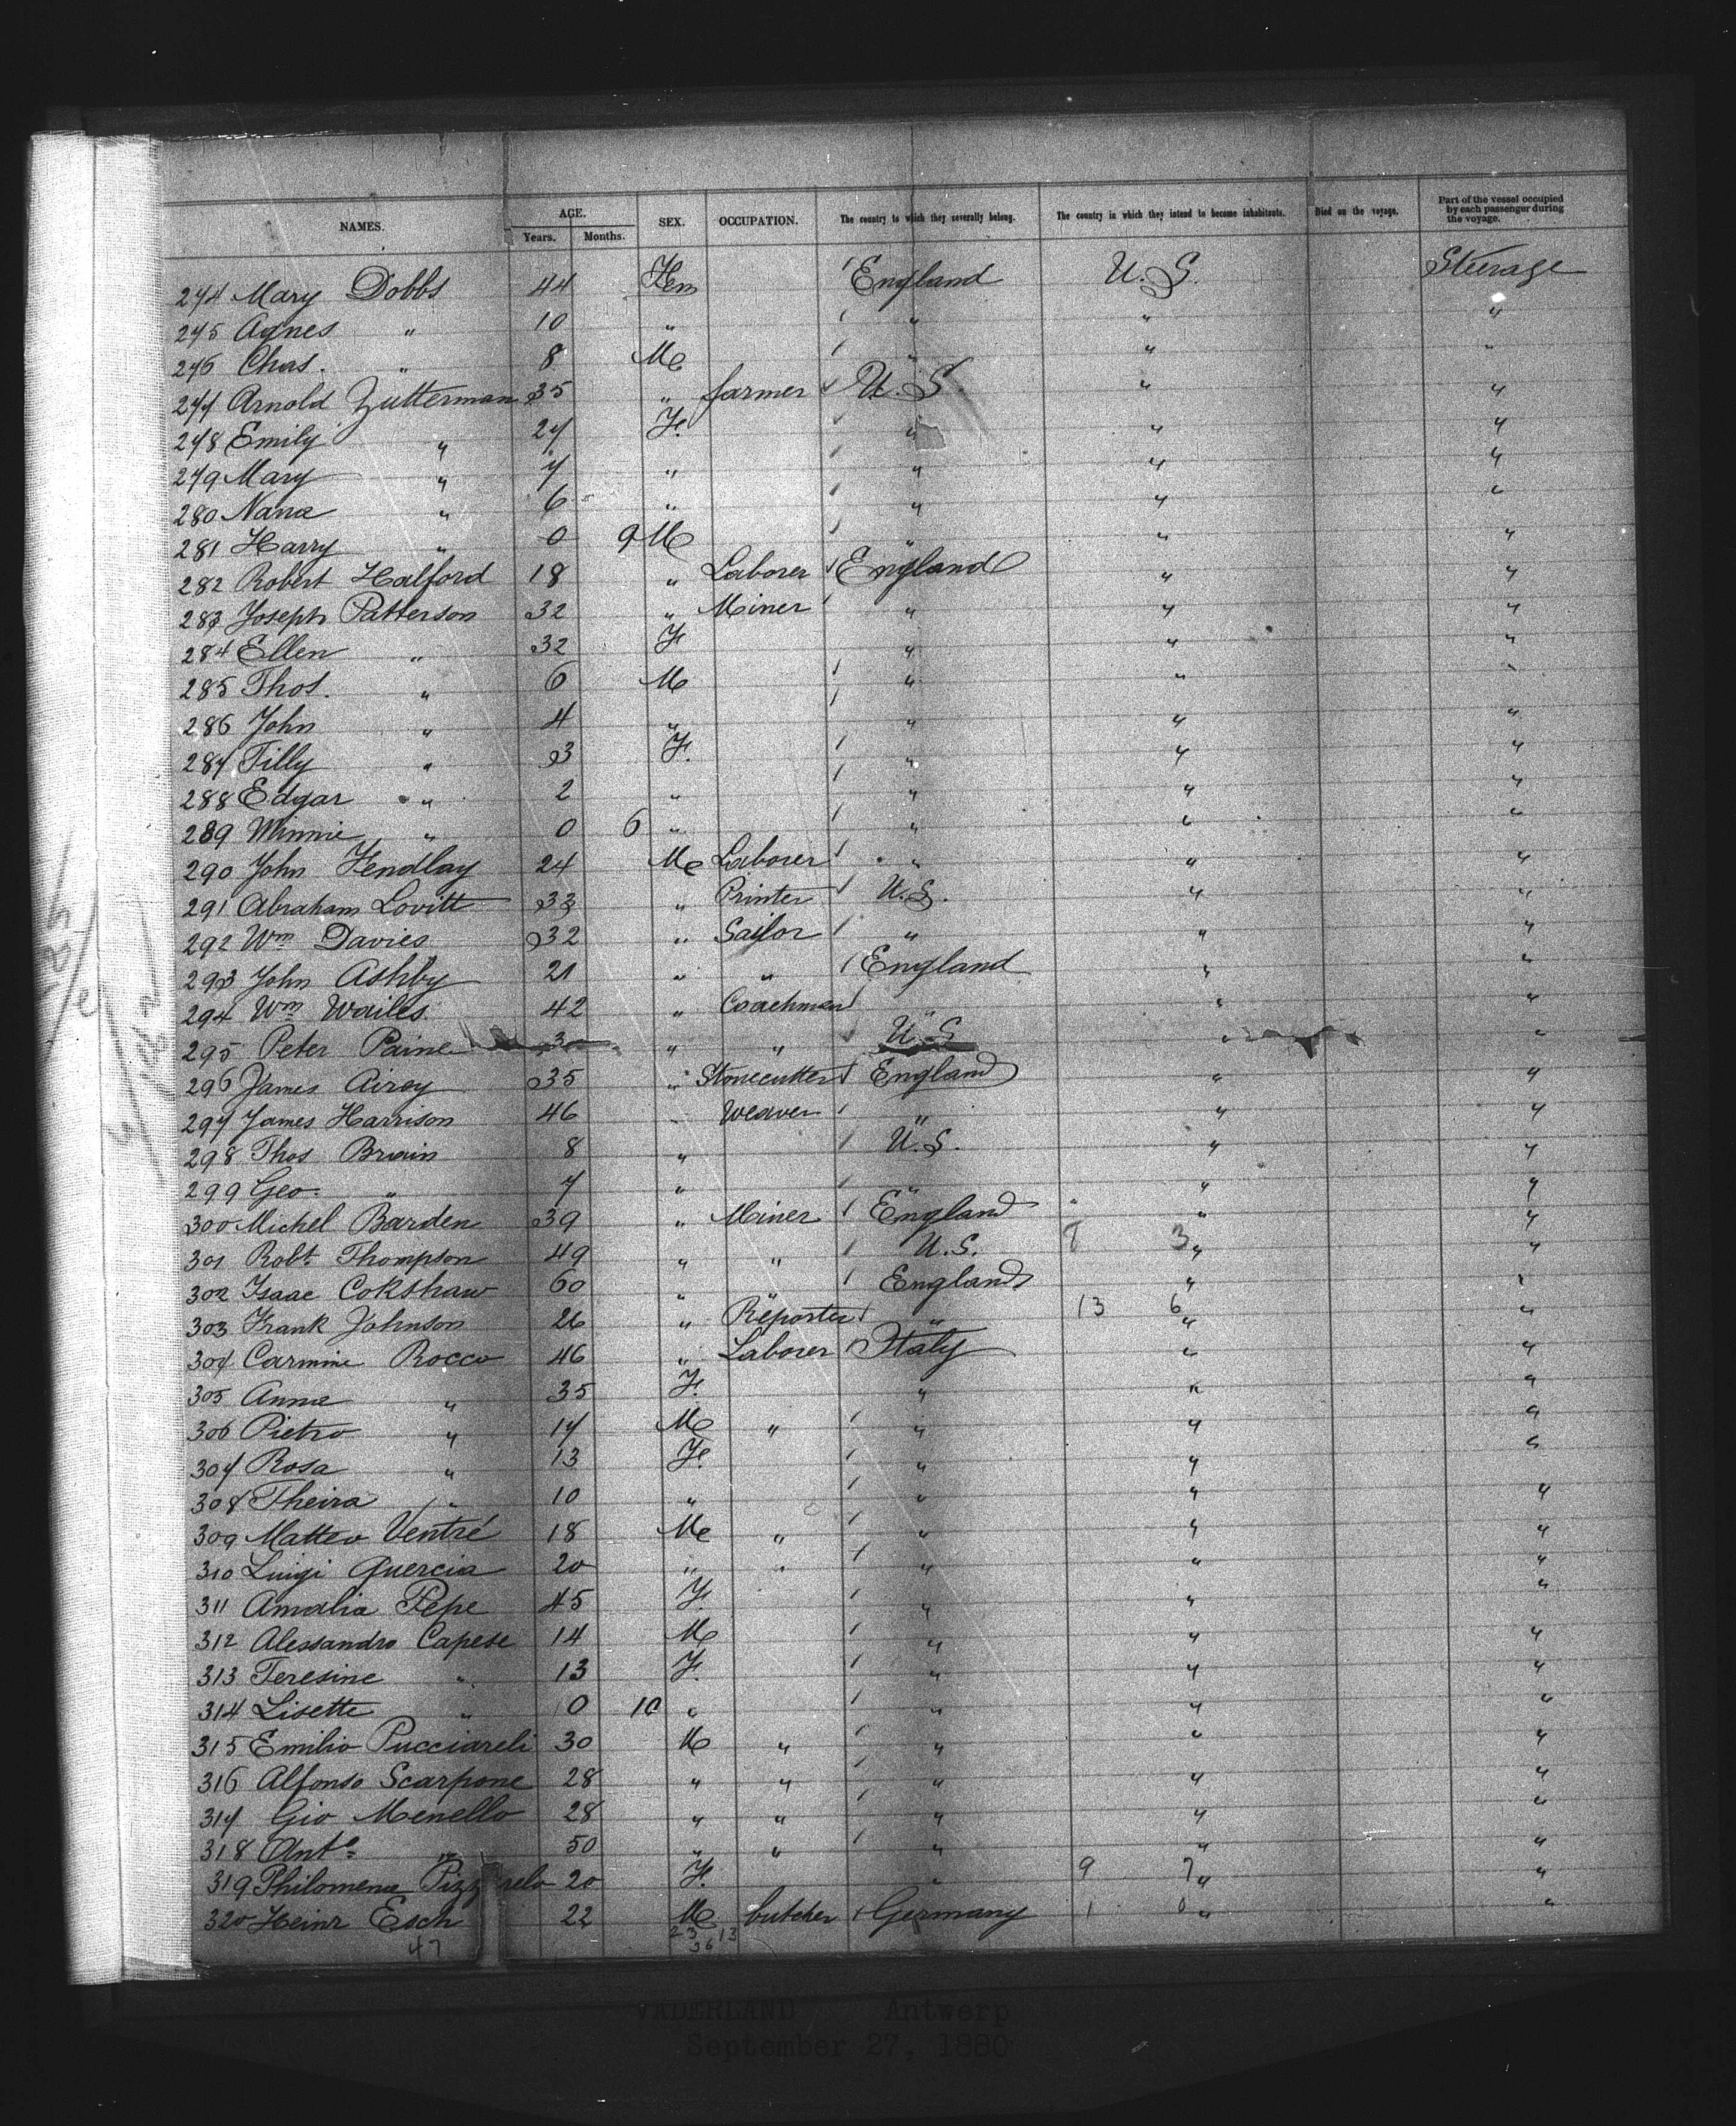 NAMES. AGE. Years. Months. SEX. OCCUPATION. The country to which they severally belong. The country in which they intend to become inhabitants. Died on the voyage. Part of the vessel occupied by each passenger during the voyage.
274 Mary Dobbs 44 Fem England U.S. Steerage
275 Agnes " 10 " " " "
276 Chas. " 8 M " " "
277 Arnold Zutterman 35 " farmer U.S. " "
278 Emily " 27 F. " " "
279 Mary " 7 " " " "
280 Nana " 6 " " " "
281 Harry " 0 9 M " " "
282 Robert Halford 18 " Laborer England " "
283 Joseph Patterson 32 " Miner " " "
284 Ellen " 32 F " " "
285 Thos. " 6 M " " "
286 John " 4 " " " "
287 Tilly " 3 F. " " "
288 Edgar " 2 " " " "
289 Minnie " 0 6 " " " "
290 John Fendlay 24 M Laborer " " "
291 Abraham Lovitt 33 " Printer U.S. " "
292 Wm Davies 32 " Sailor " " "
293 John Ashby 21 " " England " "
294 Wm Wailes 42 " Coachman " " "
295 Peter Paine " " U.S " "
296 James Airey 35 " Stonecutter England " "
297 James Harrison 46 " Weaver " " "
298 Thos Brain 8 " U.S. " "
299 Geo. " 7 " " " "
300 Michel Barden 39 " Miner England " "
301 Robt. Thompson 49 " " U.S. 8 3 " "
302 Isaac Cokshaw 60 " " England " "
303 Frank Johnson 26 " Reporter " 13 6 " "
304 Carmine Rocco 46 " Laborer Italy " "
305 Anna " 35 F. " " "
306 Pietro " 17 M " " " "
307 Rosa " 13 F. " " "
308 Theira " 10 " " " "
309 Matteo Ventré 18 M " " " "
310 Luigi Quercia 20 " " " " "
311 Amalia Pepe 45 F. " " "
312 Alessandro Capese 14 M " " "
313 Teresine " 13 F. " " "
314 Lisette " 0 10 " " " "
315 Emilio Pucciareli 30 M " " " "
316 Alfonso Scarpone 28 " " " " "
317 Gio Menello 28 " " " " "
318 Anto " 50 " " " " "
319 Philomena 20 F. " 9 7 " "
320 Heinr Esch 22 M butcher Germany 1 0 " "
47 23 13
36
VADERLAND Antwerp
September 27, 1880